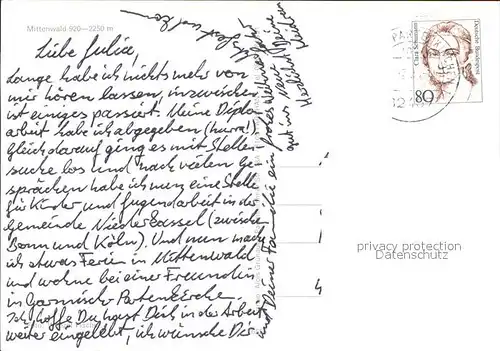 Mittenwald 920–2250 m
Liebe Julia,
lange habe ich nichts mehr von
mir hören lassen, inzwischen
ist einiges passiert. Meine Diplom
arbeit habe ich abgegeben (hurra!).
Gleich darauf ging es mit Stellen
suche los und nach vielen Ge-
sprächen habe ich nun eine Stelle
für Kinder und Jugendarbeit in der
Gemeinde Niederkassel (zwischen
Bonn und Köln). Und nun mache
ich etwas Ferien in Mittenwald
und wohne bei einer Freundin
in Garmisch Partenkirchen.
Ich hoffe Du hast Dich in der Arbeit
weiter eingelebt, ich wünsche Dir
und Deiner Familie ein frohes Weihnachtsfest
gut ins neue
Herzlichst
Clara Schumann
Deutsche Bundespost
80
privacy protection
Datenschutz